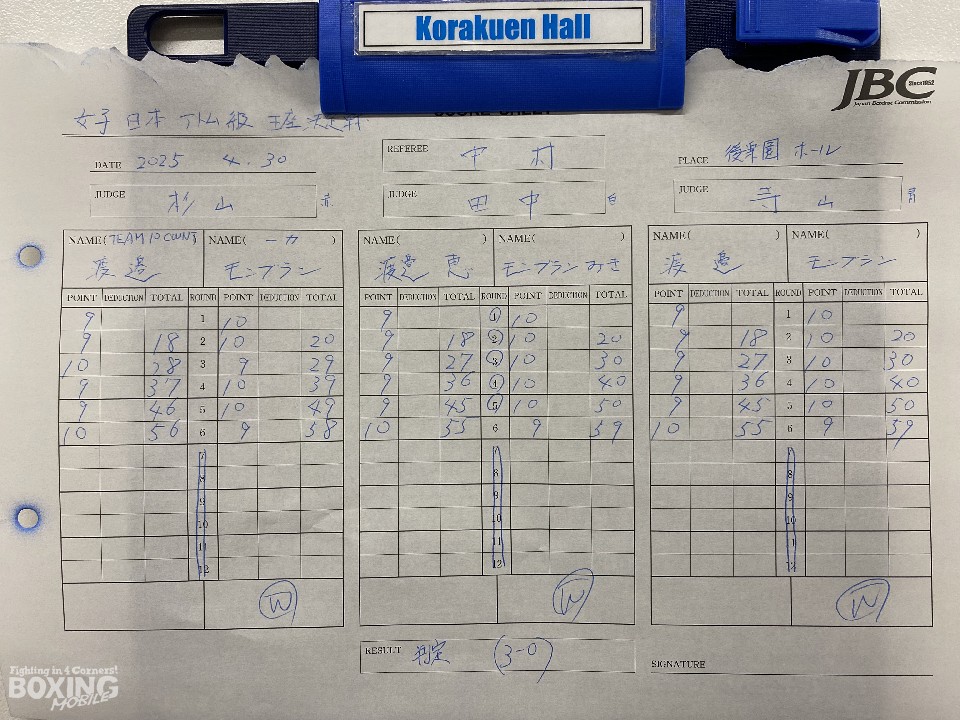 Korakuen Hall
JBC Since1952
Japan Boxing Commission
女子 日本 アトム級 王座決定戦
DATE 2025 4.30
REFEREE 中村
PLACE 後楽園ホール
JUDGE 杉山 赤
JUDGE 田中 白
JUDGE 寺山 青
NAME(TEAM 10 COUNT) NAME( 一力 ) NAME( ) NAME( ) NAME( ) NAME( )
渡邉 モンブラン 渡邉 恵 モンブランみき 渡邉 モンブラン
POINT DEDUCTION TOTAL ROUND POINT DEDUCTION TOTAL POINT DEDUCTION TOTAL ROUND POINT DEDUCTION TOTAL POINT DEDUCTION TOTAL ROUND POINT DEDUCTION TOTAL
9 1 10 9 1 10 9 1 10
9 18 2 10 20 9 18 2 10 20 9 18 2 10 20
10 28 3 9 29 9 27 3 10 30 9 27 3 10 30
9 37 4 10 39 9 36 4 10 40 9 36 4 10 40
9 46 5 10 49 9 45 5 10 50 9 45 5 10 50
10 56 6 9 58 10 55 6 9 59 10 55 6 9 59
7 7 7
8 8 8
9 9 9
10 10 10
11 11 11
12 12 12
W W W
RESULT 判定 (3-0)
SIGNATURE
Fighting in 4 Corners!
BOXING
MOBILE